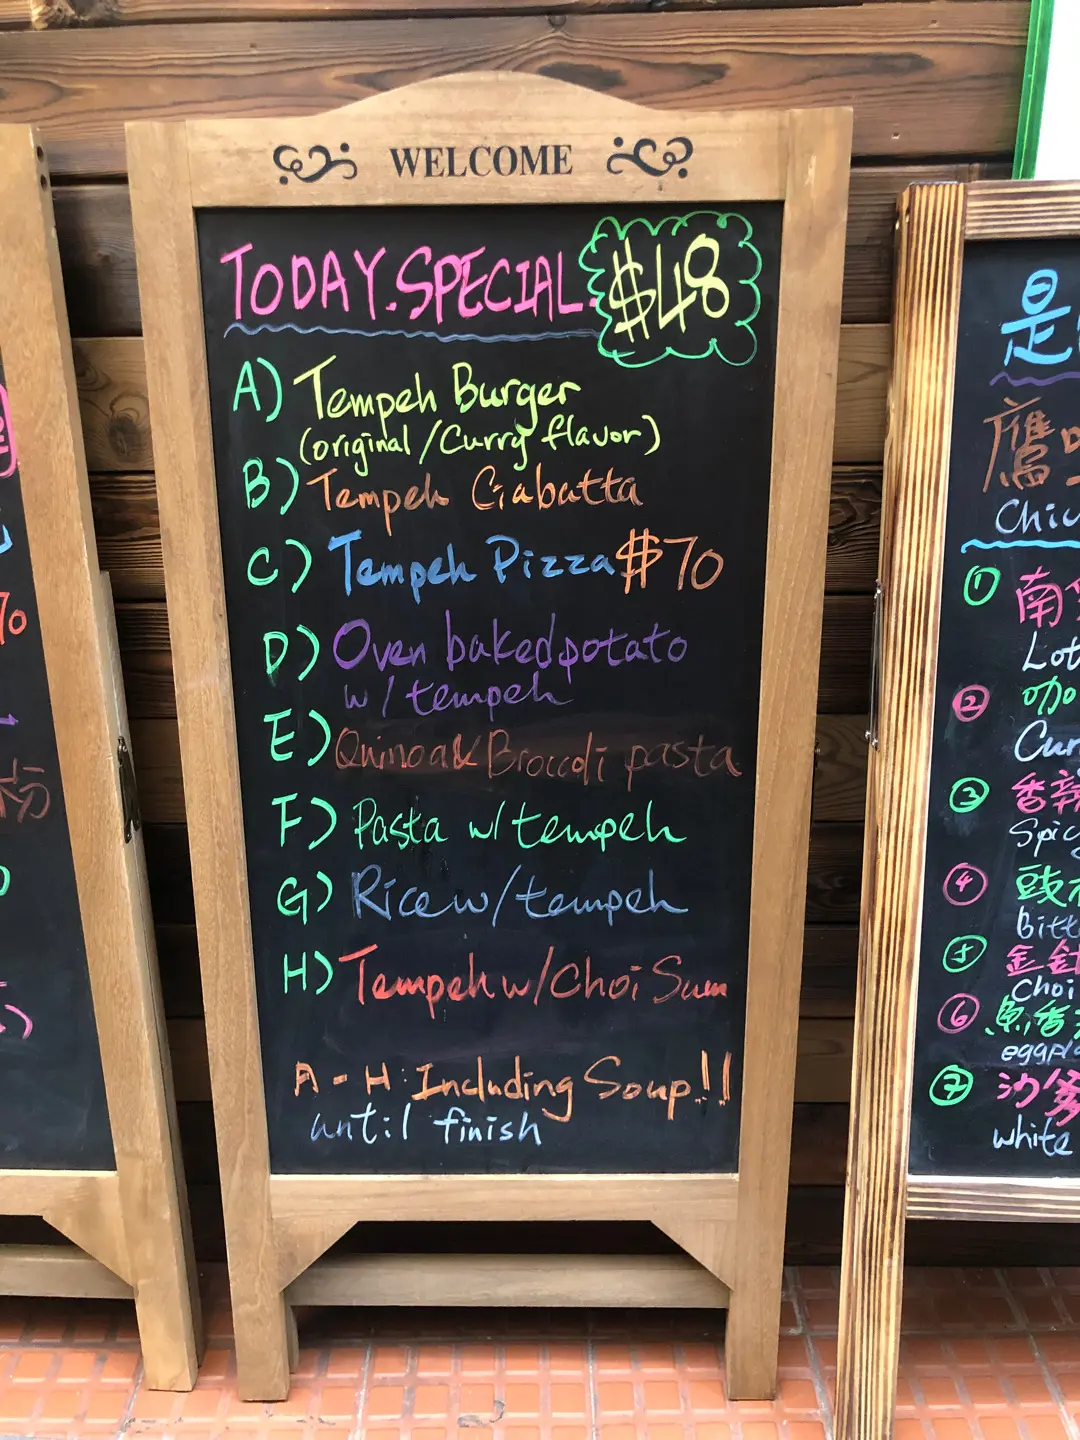 WELCOME
TODAY.SPECIAL. $48
A) Tempeh Burger
(original/Curry flavor)
B) Tempeh Ciabatta
C) Tempeh Pizza $70
D) Oven baked potato
w/ tempeh
E) Quinoa & Broccoli pasta
F) Pasta w/ tempeh
G) Rice w/ tempeh
H) Tempeh w/ Choi Sum
A - H: Including Soup!!
until finish
是
鷹
Chic
① 南
Lot
② 咖
Cur
③ 香辣
Spic
④ 豉
Bitt
⑤ 金針
Choi
⑥ 魚香
eggpl
⑦ 沙爹
white
70
粉